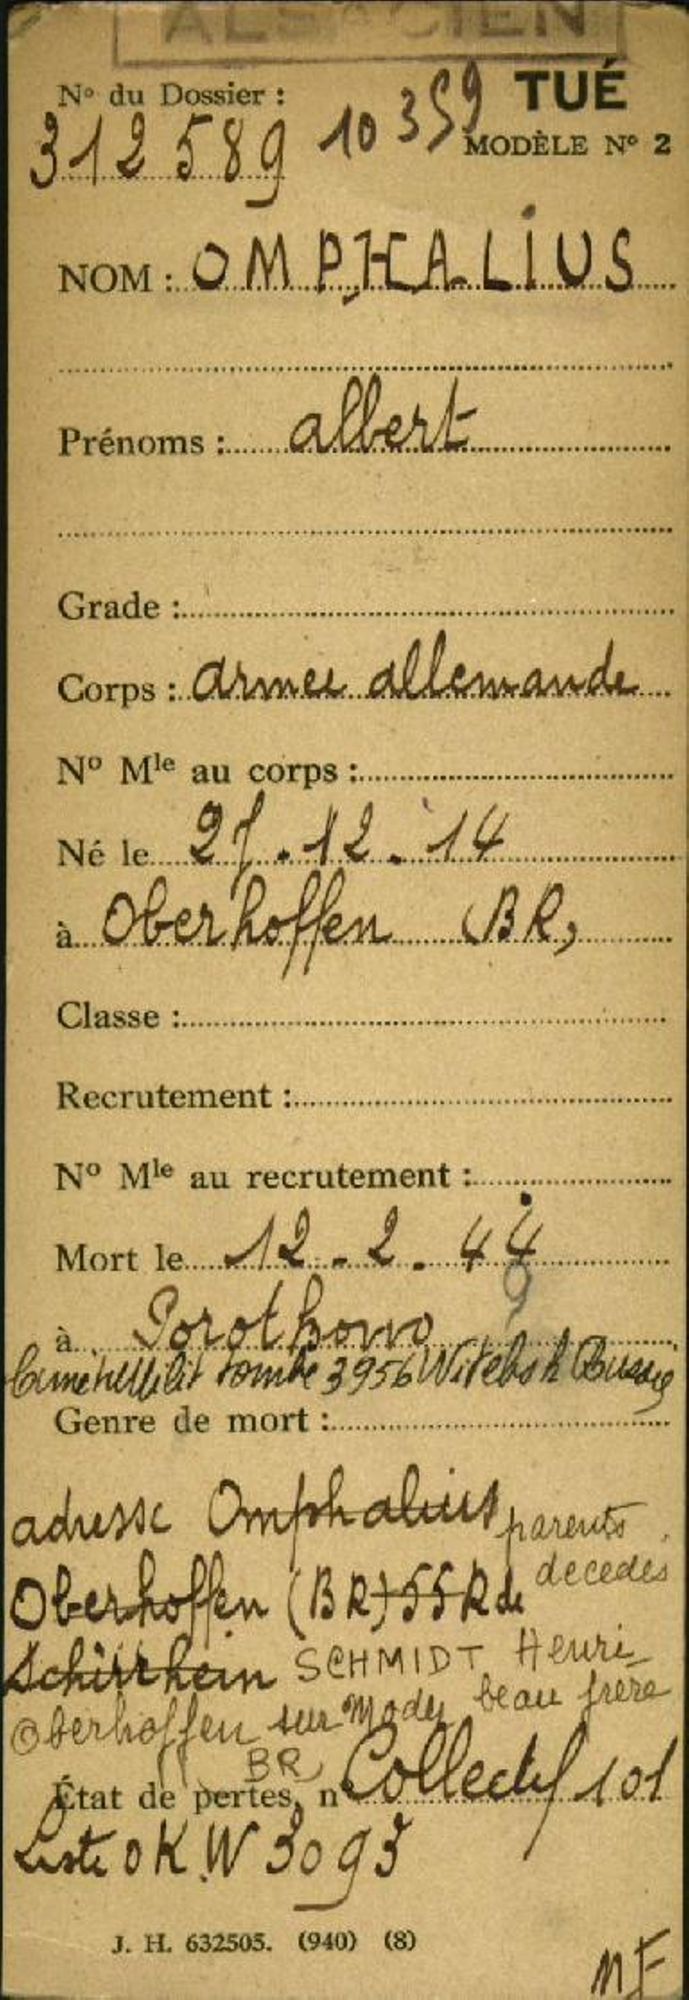 ALSACIEN
N° du Dossier : TUÉ
312589 10359 MODÈLE N° 2
NOM : OMPHALIUS
Prénoms : albert
Grade :
Corps : armee allemande
N° Mle au corps :
Né le 27.12.14
à Oberhoffen (BR)
Classe :
Recrutement :
N° Mle au recrutement :
Mort le 12-2.44
à Porothowo
tombe 3956 Witebsk Russie
Genre de mort :
adresse Omphalius parents
Oberhoffen (BR) 55 R de décédés
Schirrhein SCHMIDT Henri
Oberhoffen sur Moder beau frère
BR
État de pertes, n° Collectif 101
Liste OKW 3093
J. H. 632505. (940) (8)